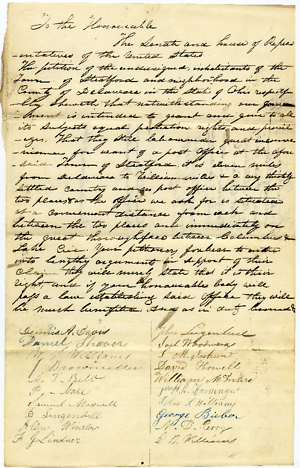 To the Honourable
The Senate and house of Repres
entatives of the United States
The petition of the undersigned, inhabitants of the
Town of Stratford and neighborhood in the
County of Delaware in the State of Ohio respectfu
lly Sheweth that notwithstanding our Govern
ment is intended to grant and give to all
its subjects equal protection rights and privil
eges, that they still labour under great inconve
nience for want of a post Office at the afore
said Town of Stratford. It is seven miles
from Delaware to Williamsville & a very thickly
settled country and no post office between the
two places as the office we ask for is situated
at a convenient distance from each and
between the two places and immediately on
the great thoroughfare between Columbus &
Lake Erie. Your petitioners forbear to enter
into lengthy argument in support of their
Claim. They will merely state that it is their
right and if your honourable body will
pass a law establishing said office they will
be much benefited and as in duty bound &c
Dennis A. Davis
Daniel Thavor
Williams
Samuel Maxwell
Winslow
F. J. Lindner
Joel Woodward
S. M. Jackson
David Howell
William
John S. Williams
George Bishop
N. D. Perry
Williams